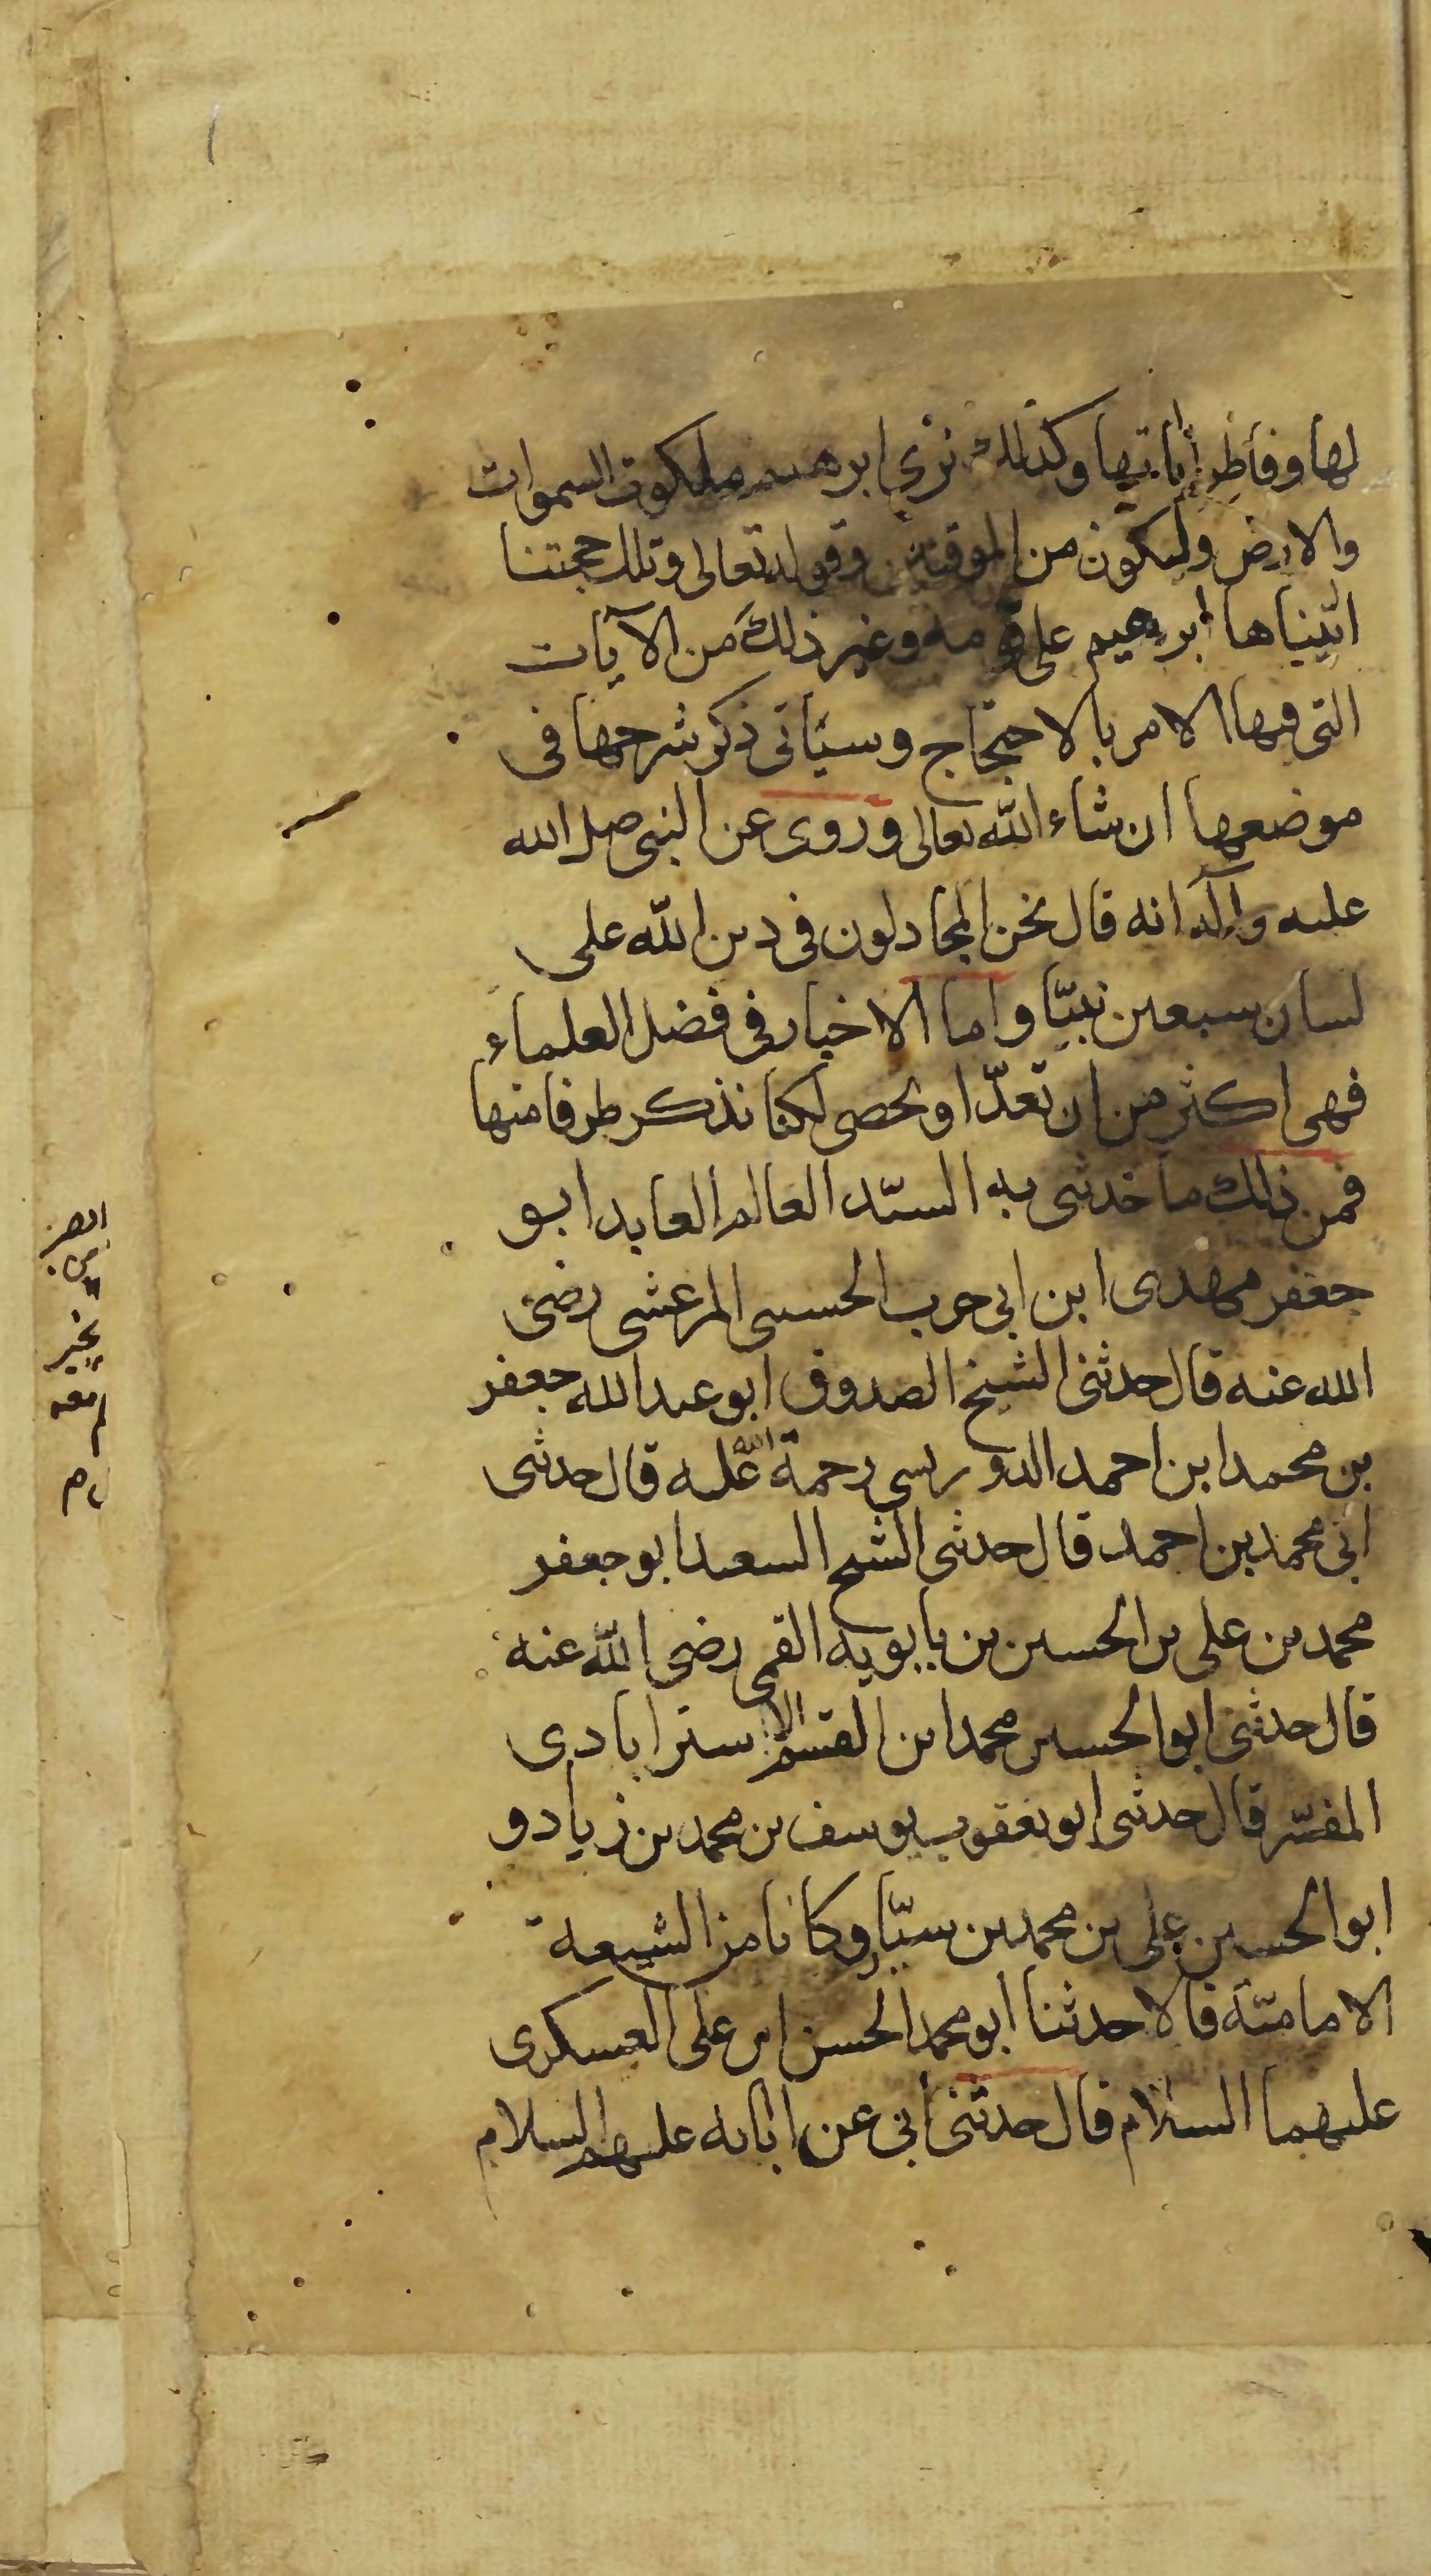 لها وفاطر إنباتها وكذلك نرى ابرهيم ملكوت السموات
والارض وليكون من الموقنين وقوله تعالى وتلك حجتنا
اتيناها ابرهيم على قومه وغير ذلك من الآيات
التى فيها الامر بالاحتجاج وسيأتى ذكر شرحها فى
موضعها ان شاء الله تعالى وروى عن النبى صلى الله
عليه وآله انه قال نحن المجادلون فى دين الله على
لسان سبعين نبيّا واما الاخبار فى فضل العلماء
فهى اكثر من ان تعدّ او تحصى لكنا نذكر طرفا منها
فمن ذلك ما حدثنى به السيّد العالم العابد ابو
جعفر مهدى ابن ابى حرب الحسينى المرعشى رضى
الله عنه قال حدثنى الشيخ الصدوق ابو عبد الله جعفر
بن محمد ابن احمد الدوريسى رحمة الله عليه قال حدثنى
ابى محمد بن احمد قال حدثنى الشيخ السعيد ابو جعفر
محمد بن على بن الحسين بن بابويه القمى رضى الله عنه
قال حدثنى ابو الحسين محمد ابن القسم الاسترابادى
المفسّر قال حدثنى ابو يعقوب يوسف بن محمد بن زياد و
ابو الحسين على بن محمد بن سيّار وكانا من الشيعة
الاماميّة قالا حدثنا ابو محمد الحسن ابن على العسكرى
عليهما السلام قال حدثنى أبى عن اٰبائه عليهم السلام